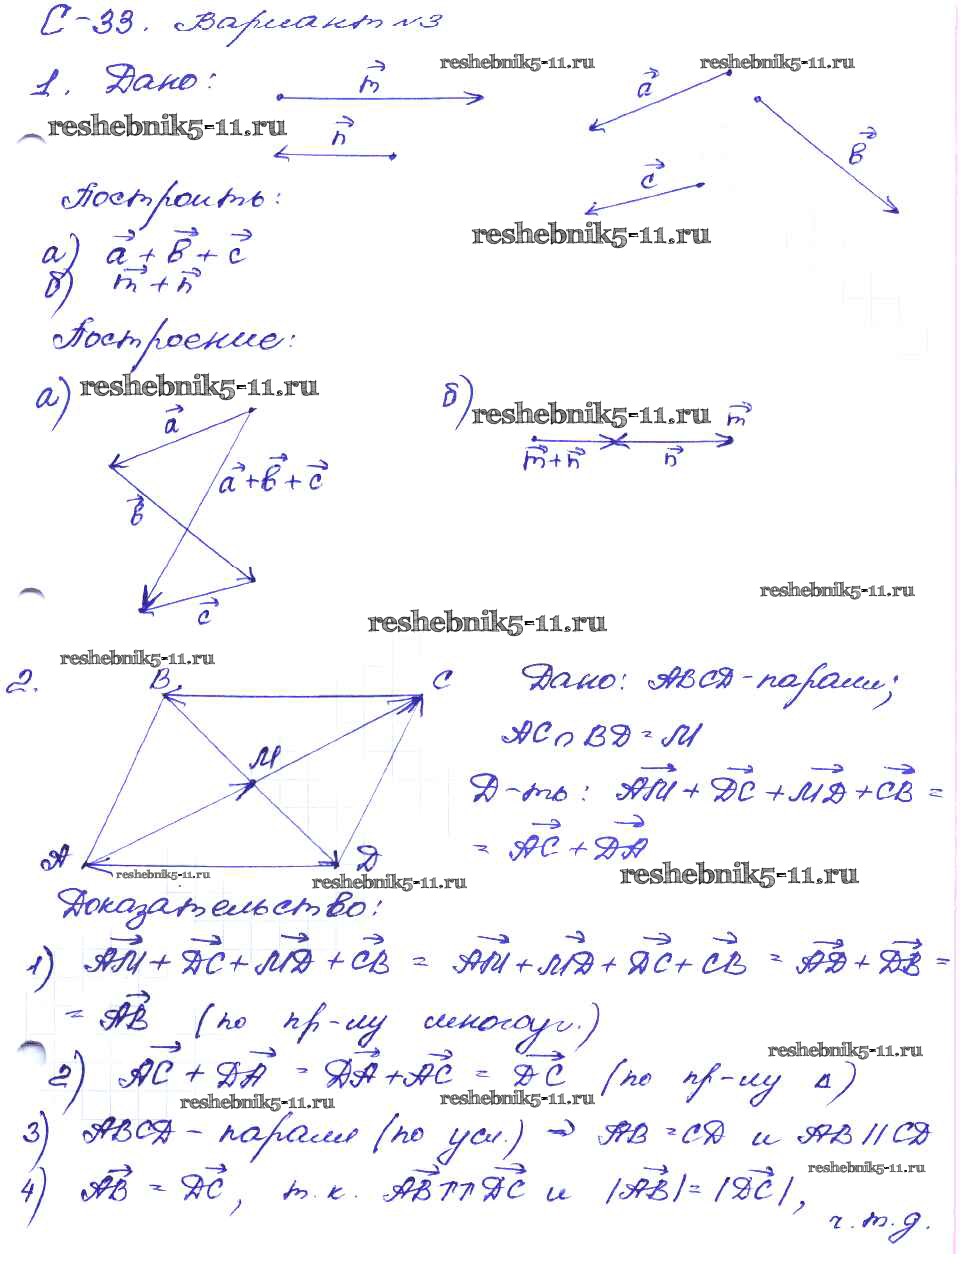 С-33. Вариант №3
reshebnik5-11.ru reshebnik5-11.ru
1. Дано: m⃗ a⃗
reshebnik5-11.ru n⃗ c⃗ в⃗
Построить:
reshebnik5-11.ru
а) a⃗ + в⃗ + c⃗
б) m⃗ + n⃗
Построение:
а) reshebnik5-11.ru б) reshebnik5-11.ru
a⃗ m⃗
m⃗+n⃗ n⃗
a⃗+в⃗+c⃗
в⃗
c⃗
reshebnik5-11.ru
reshebnik5-11.ru
reshebnik5-11.ru
2. B C Дано: ABCD-паралл;
AC∩BD=M
M
Д-ть: AM⃗ + DC⃗ + MD⃗ + CB⃗ =
= AC⃗ + DA⃗
A D
reshebnik5-11.ru reshebnik5-11.ru reshebnik5-11.ru
Доказательство:
1) AM⃗ + DC⃗ + MD⃗ + CB⃗ = AM⃗ + MD⃗ + DC⃗ + CB⃗ = AD⃗ + DB⃗ =
= AB⃗ (по пр-лу многоуг.)
reshebnik5-11.ru
2) AC⃗ + DA⃗ = DA⃗ + AC⃗ = DC⃗ (по пр-лу Δ)
reshebnik5-11.ru reshebnik5-11.ru
3) ABCD - паралл (по усл.) ⇒ AB = CD и AB || CD
reshebnik5-11.ru
4) AB⃗ = DC⃗, т.к. AB⃗ ↑↑ DC⃗ и |AB⃗| = |DC⃗|,
ч.т.д.